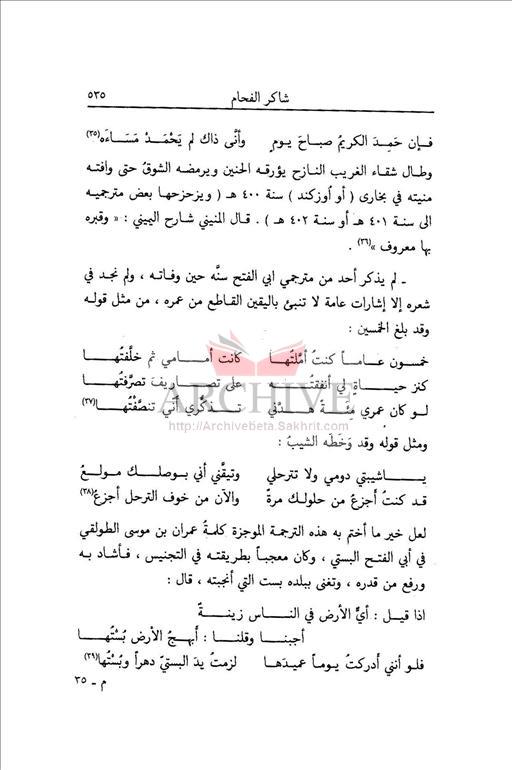 شاكر الفحام ٥٣٥
فإن حَمِدَ الكريمُ صباحَ يومٍ وأنَّى ذاك لم يَحْمَدْ مَسَاءَه(٣٥)
وطال شقاء الغريب النازح يؤرقه الحنين ويرمضه الشوقُ حتى وافته
منيته في بخارى ( أو أوزكند ) سنة ٤٠٠ هـ ( ويزحزحها بعض مترجميه
الى سنة ٤٠١ هـ أو سنة ٤٠٢ هـ ) . قال المنيني شارح اليميني : « وقبره
بها معروف »(٣٦) .
ـ لم يذكر أحد من مترجمي ابي الفتح سنَّه حين وفاته ، ولم نجد في
شعره إلا إشارات عامة لا تنبئ باليقين القاطع من عمره ، من مثل قوله
وقد بلغ الخمسين :
خمسون عاماً كنتُ أمّلتُها كانت أمامي ثم خلَّفتُها
كنز حياةٍ لي أنفقتُه على تصاريف تصرَّفتُها
لو كان عمري مِئَةً هدَّني تذكُّري أنّي تنصَّفْتُها(٣٧)
ARCHIVE
http://Archivebeta.Sakhrit.com
ومثل قوله وقد وَخَطَه الشيبُ :
ياشيبتي دومي ولا تترحلي وتيقَّني أني بوصلك مولعُ
قد كنتُ أجزعُ من حلولك مرةً والآن من خوف الترحل أجزعُ(٣٨)
لعل خير ما أختم به هذه الترجمة الموجزة كلمةُ عمران بن موسى الطولقي
في أبي الفتح البستي ، وكان معجباً بطريقته في التجنيس ، فأشاد به
ورفع من قدره ، وتغنى ببلده بست التي أنجبته ، قال :
اذا قيل : أيُّ الأرض في الناس زينةً
أجبنا وقلنا : أبهجُ الأرض بُسْتُها
فلو أنني أدركتُ يوماً عميدَها لزمتُ يدَ البستيّ دهراً وبُسْتُها(٣٩)
م ـ ٣٥